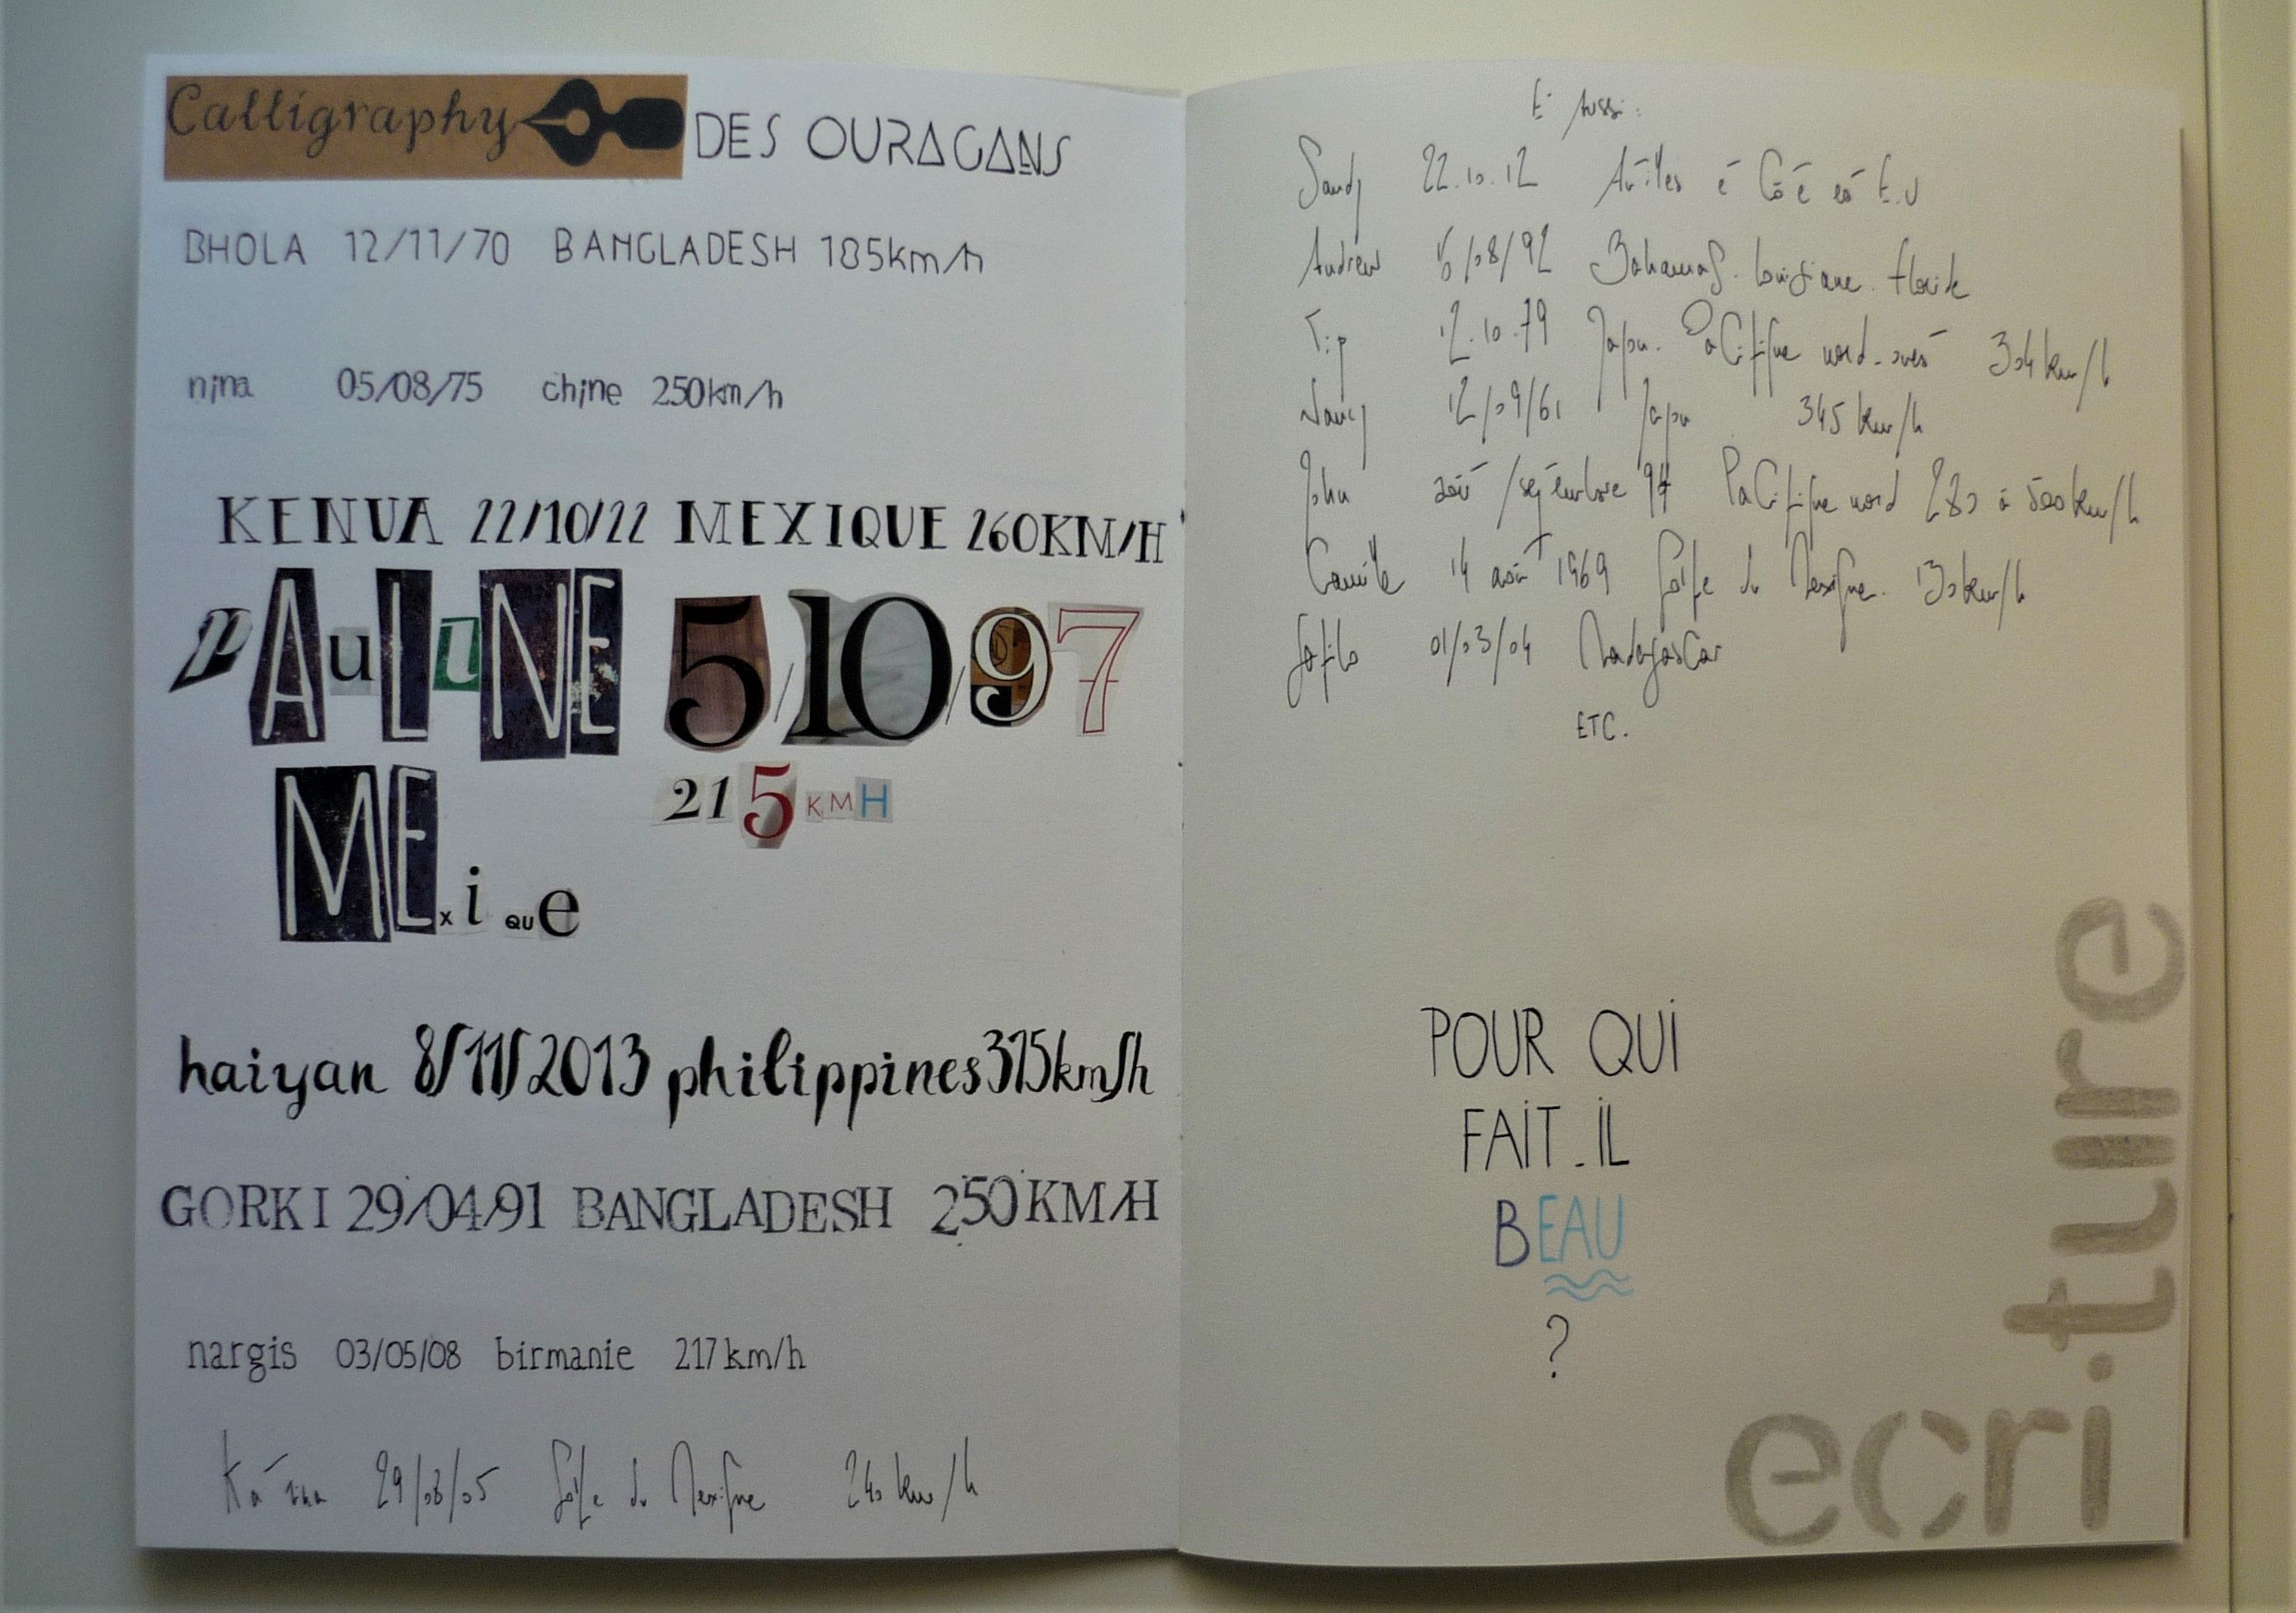 Calligraphy DES OURAGANS
BHOLA 12/11/70 BANGLADESH 185km/h
nina 05/08/75 chine 250km/h
KENNA 22/10/22 MEXIQUE 260KM/H
PAuLiNE 5/10/97
215 KMH
MExiQUe
haiyan 8/11/2013 philippines 315km/h
GORKI 29/04/91 BANGLADESH 250KM/H
nargis 03/05/08 birmanie 217km/h
Katrina 29/08/05 Golfe du Mexique 240 km/h
Et Aussi:
Sandy 22.10.12 Antilles et Côte est E.U
Andrew 16/08/92 Bahamas. louisiane. floride
Tip 12.10.79 Japon. Pacifique nord-ouest 304km/h
Nancy 12/09/61 Japon 345 km/h
John août/septembre 94 Pacifique nord 280 à 500km/h
Camille 14 août 1969 Golfe du Mexique. 130km/h
Gafilo 01/03/04 Madagascar
ETC.
POUR QUI
FAIT-IL
BEAU
?
ecri.ture